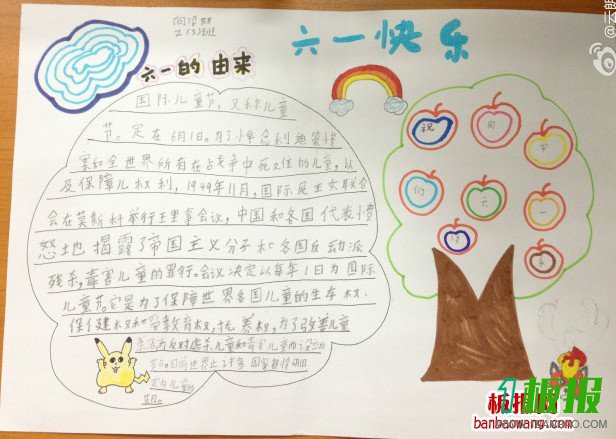 2(3)班
六一快乐
六一的由来
国际儿童节，又称儿童
节。定在6月1日。为了悼念利迪策惨
案和全世界所有在战争中死
的儿童，以
及保障儿权利，1949年11月，国际民主
联合会
会在莫斯科举行
理事会议，中国和各国代表愤
怒地揭露了帝国主义分子和各国反动派
残杀，毒害儿童的罪行。会议决定以每年
1日为国际
儿童节。它是为了保障世界各国儿童的生存权、
保健权和受教育权，抚养权，为了改善儿童
生活为反对虐杀儿童和毒害儿童而设
目前世界上许多国家都将6月1日
定为儿童的
节日。
祝
同
学
们
六
一
快
乐
板报
板报网
banbaowang.com